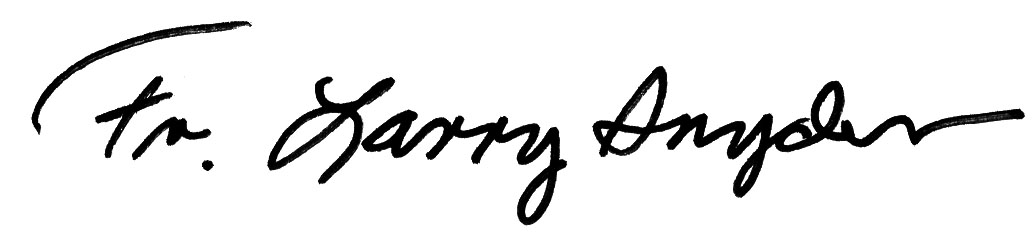 Fr. Larry Snyder